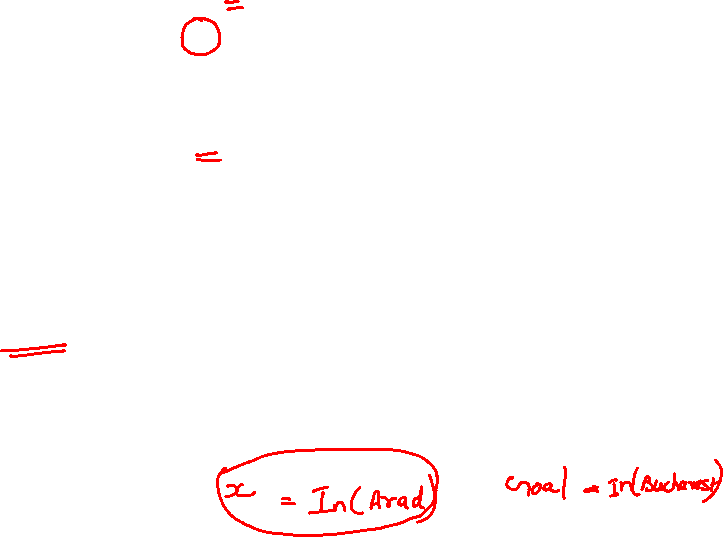 x = In(Arad) Goal = In(Bucharest)